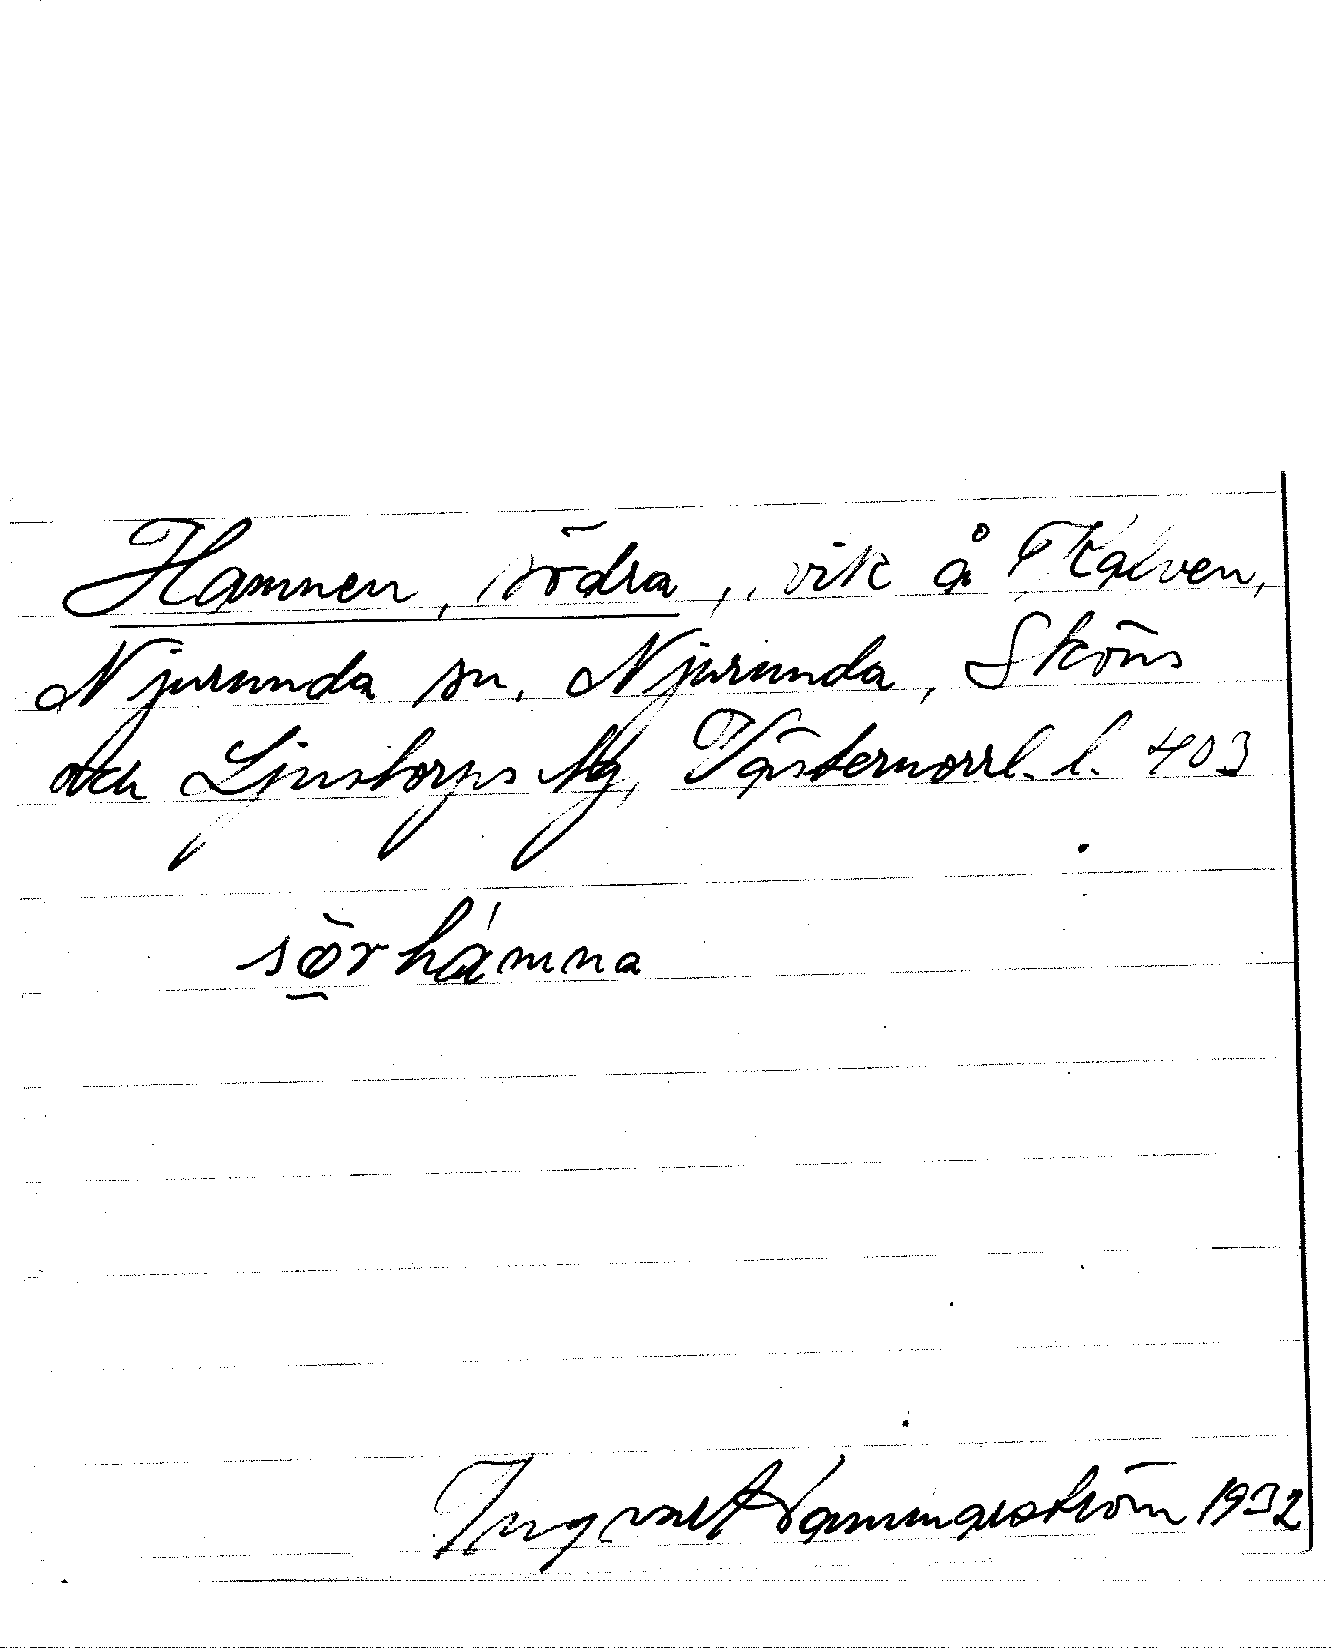 Hamnen, södra, vik å Kalven,
Njurunda sn. Njurunda, Sköns
och Ljustorps tlg, Västernorrl. l. 403
sörhámna
Ingvar 1932